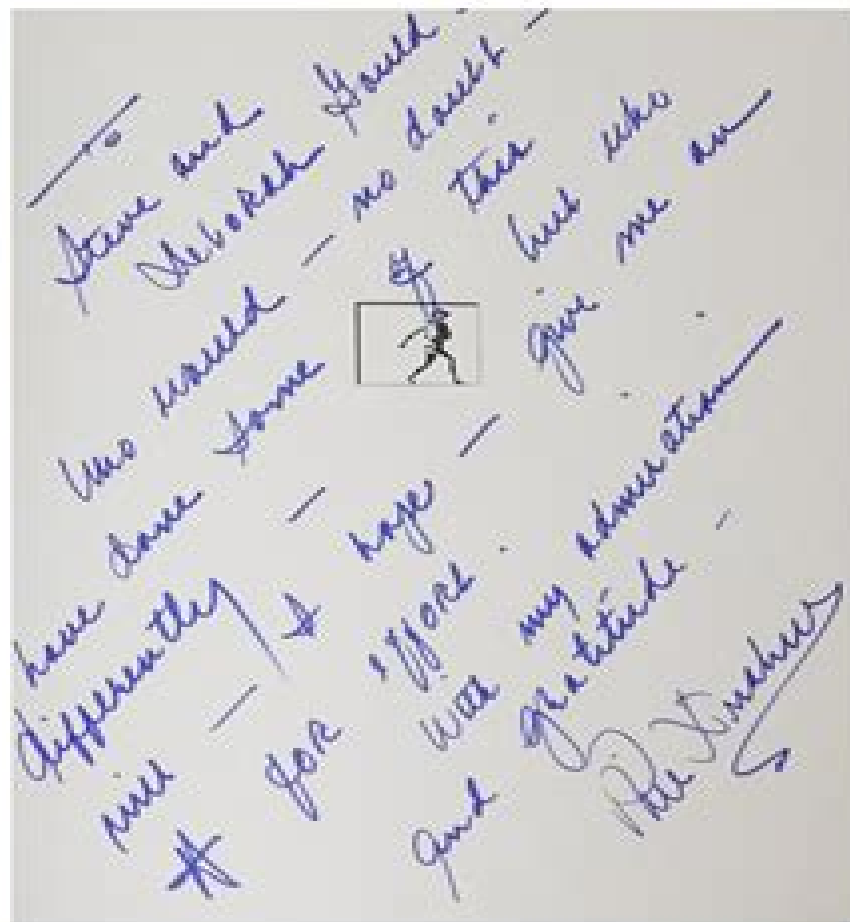 To
Steve and
Deborah Gould -
who would - no doubt -
have done some of this
differently but who
will - I hope - give me an
A for effort.
With my admiration
and gratitude -